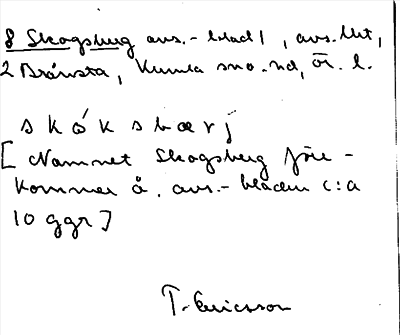 8 Skogsberg avs.-blad 1, avs. till,
2 Brånsta, Kumla sn o. hd, Ör. l.
skóksbærj
[Namnet Skogsberg före-
kommer å avs.-bladen c:a
10 ggr]
T. Ericsson